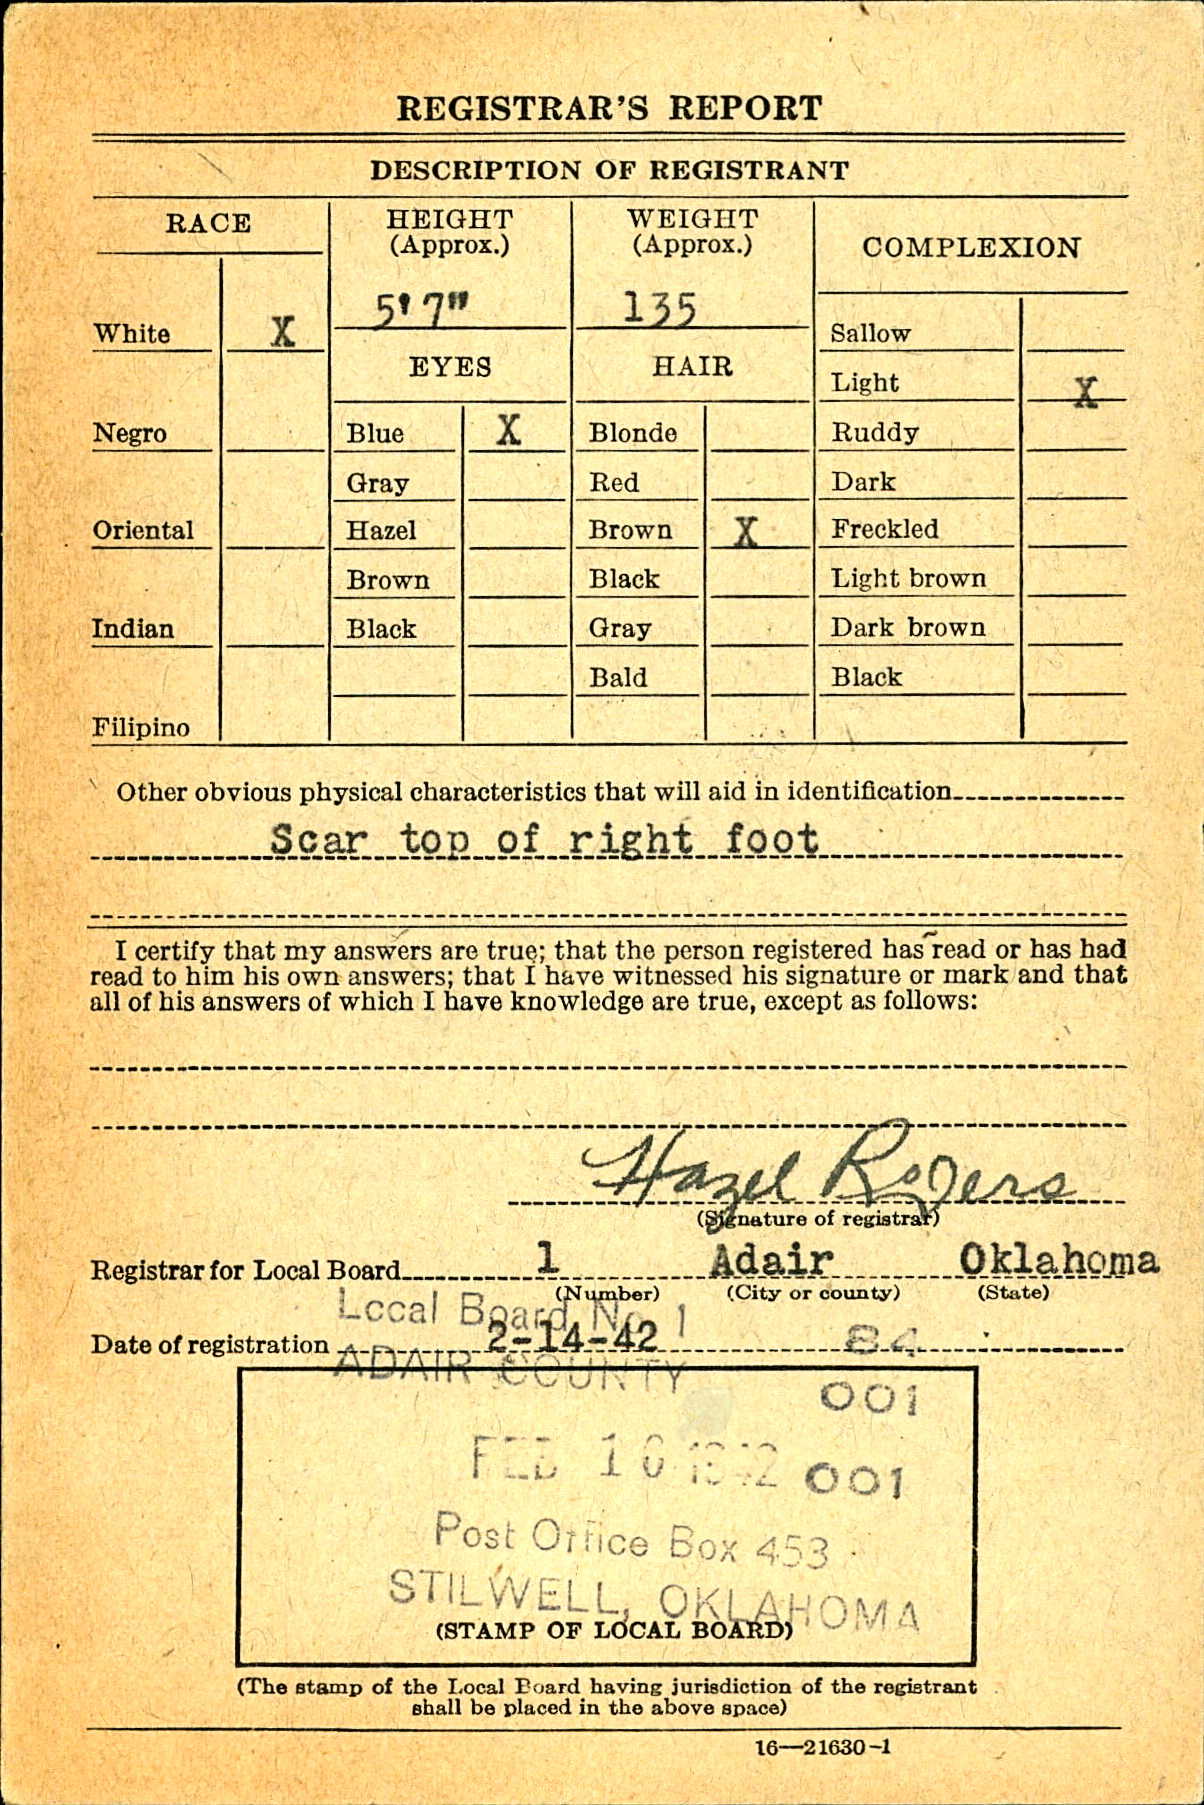 REGISTRAR'S REPORT
DESCRIPTION OF REGISTRANT
RACE
HEIGHT
(Approx.)
WEIGHT
(Approx.)
COMPLEXION
5' 7"
135
White X
Sallow
EYES
HAIR
Light X
Negro
Blue X
Blonde
Ruddy
Gray
Red
Dark
Oriental
Hazel
Brown X
Freckled
Brown
Black
Light brown
Indian
Black
Gray
Dark brown
Bald
Black
Filipino
Other obvious physical characteristics that will aid in identification
Scar top of right foot
I certify that my answers are true; that the person registered has read or has had
read to him his own answers; that I have witnessed his signature or mark and that
all of his answers of which I have knowledge are true, except as follows:
Hazel Rogers
(Signature of registrar)
Registrar for Local Board 1 Adair Oklahoma
(Number) (City or county) (State)
Local Board No. 1
Date of registration 2-14-42 84
ADAIR COUNTY
001
FEB 16 1942 001
Post Office Box 453
STILWELL, OKLAHOMA
(STAMP OF LOCAL BOARD)
(The stamp of the Local Board having jurisdiction of the registrant
shall be placed in the above space)
16—21630-1